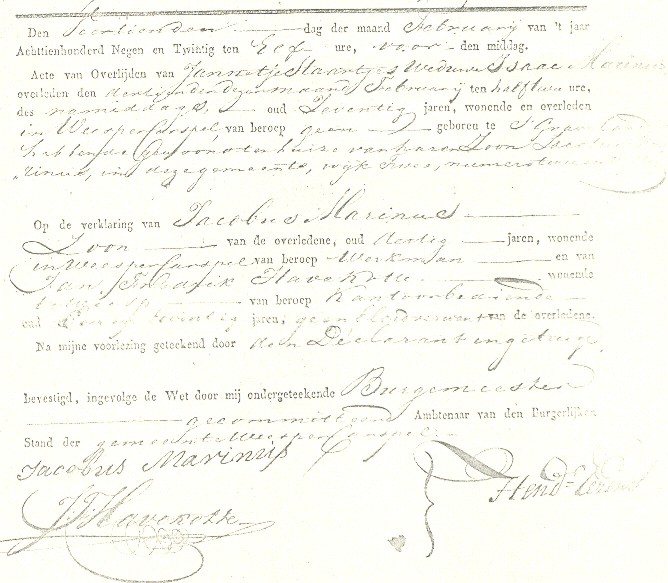 Den Veertienden dag der maand Februarij van 't jaar
Achttienhonderd Negen en Twintig ten Elf ure, voor den middag.
Acte van Overlijden van Jannetje Maartjes Weduwe Isaac Marinus
overleden den dertienden dezer maand Februarij ten half twee ure,
des namiddags, oud Zeventig jaren, wonende en overleden
in Weespercarspel, van beroep geene geboren te
hebbende Gewoond ten huize van haren Zoon
in deze gemeente, wijk Twee, numero
Op de verklaring van Jacobus Marinus
Zoon van de overledene, oud dertig jaren, wonende
in Weespercarspel van beroep Werkman en van
Jan Frederik Havekotte wonende
te Weesp van beroep Kantoorbediende
oud en twintig jaren, geen bloedverwant van de overledene.
Na mijne voorlezing geteekend door den Declarant en getuige
bevestigd, ingevolge de Wet door mij ondergeteekende Burgemeester
gecommitteerd Ambtenaar van den Burgerlijken
Stand der gemeente Weespercarspel.
Jacobus Marinus
Havekotte
Hend: